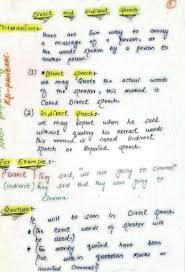 Direct and Indirect Speech
Introduction:-
There are two way to convey
a massage of a person, or
the words spoken by a person to
another person.
(1) Direct speech:-
we may quote the actual words
of the speaker, this method is
called Direct speech.
(2) Indirect speech:-
we may report when he said
without quoting his exract words
This method is called indirect
speech or Reported speech.
For Example:-
Direct They said, we are going to cinema
(Indirect) They said that they were going to
cinema.
Structure:-
It will be seen in Direct speech.
The exact words of speaker will
be used:-)
The words quoted have been
put in quotation Marks or
inverted commas